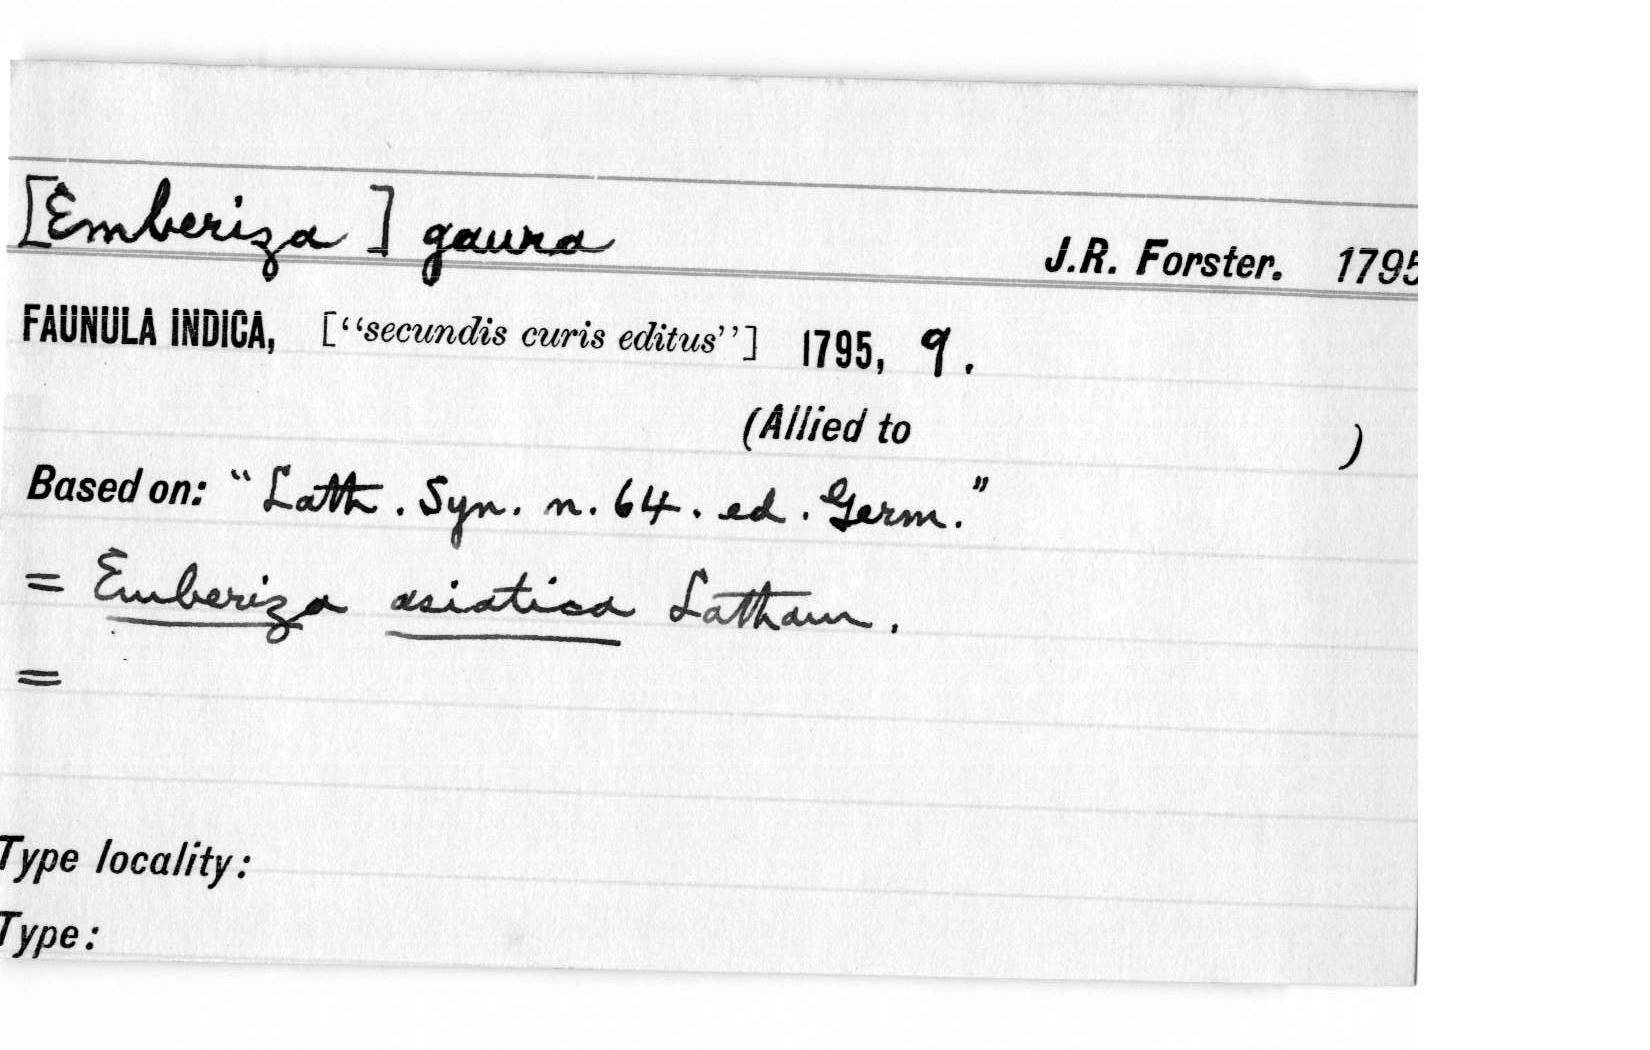 [Emberiza ] gaura J.R. Forster. 1795
FAUNULA INDICA, [“secundis curis editus”] 1795, 9.
(Allied to )
Based on: “Lath. Syn. n. 64. ed. Germ.”
= Emberiza asiatica Latham.
=
Type locality:
Type: